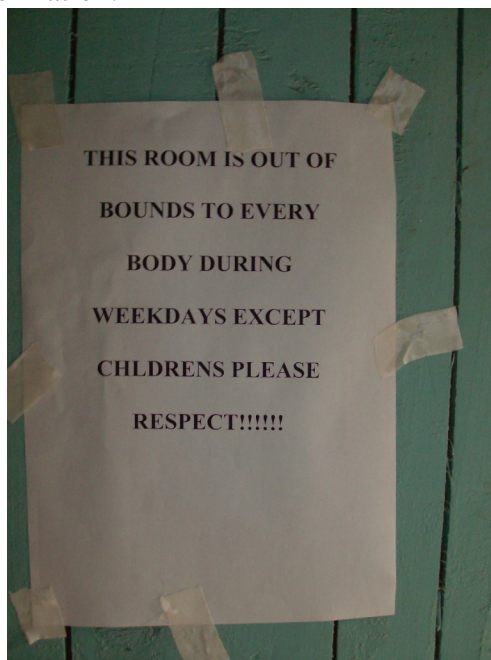 THIS ROOM IS OUT OF
BOUNDS TO EVERY
BODY DURING
WEEKDAYS EXCEPT
CHLDRENS PLEASE
RESPECT!!!!!!